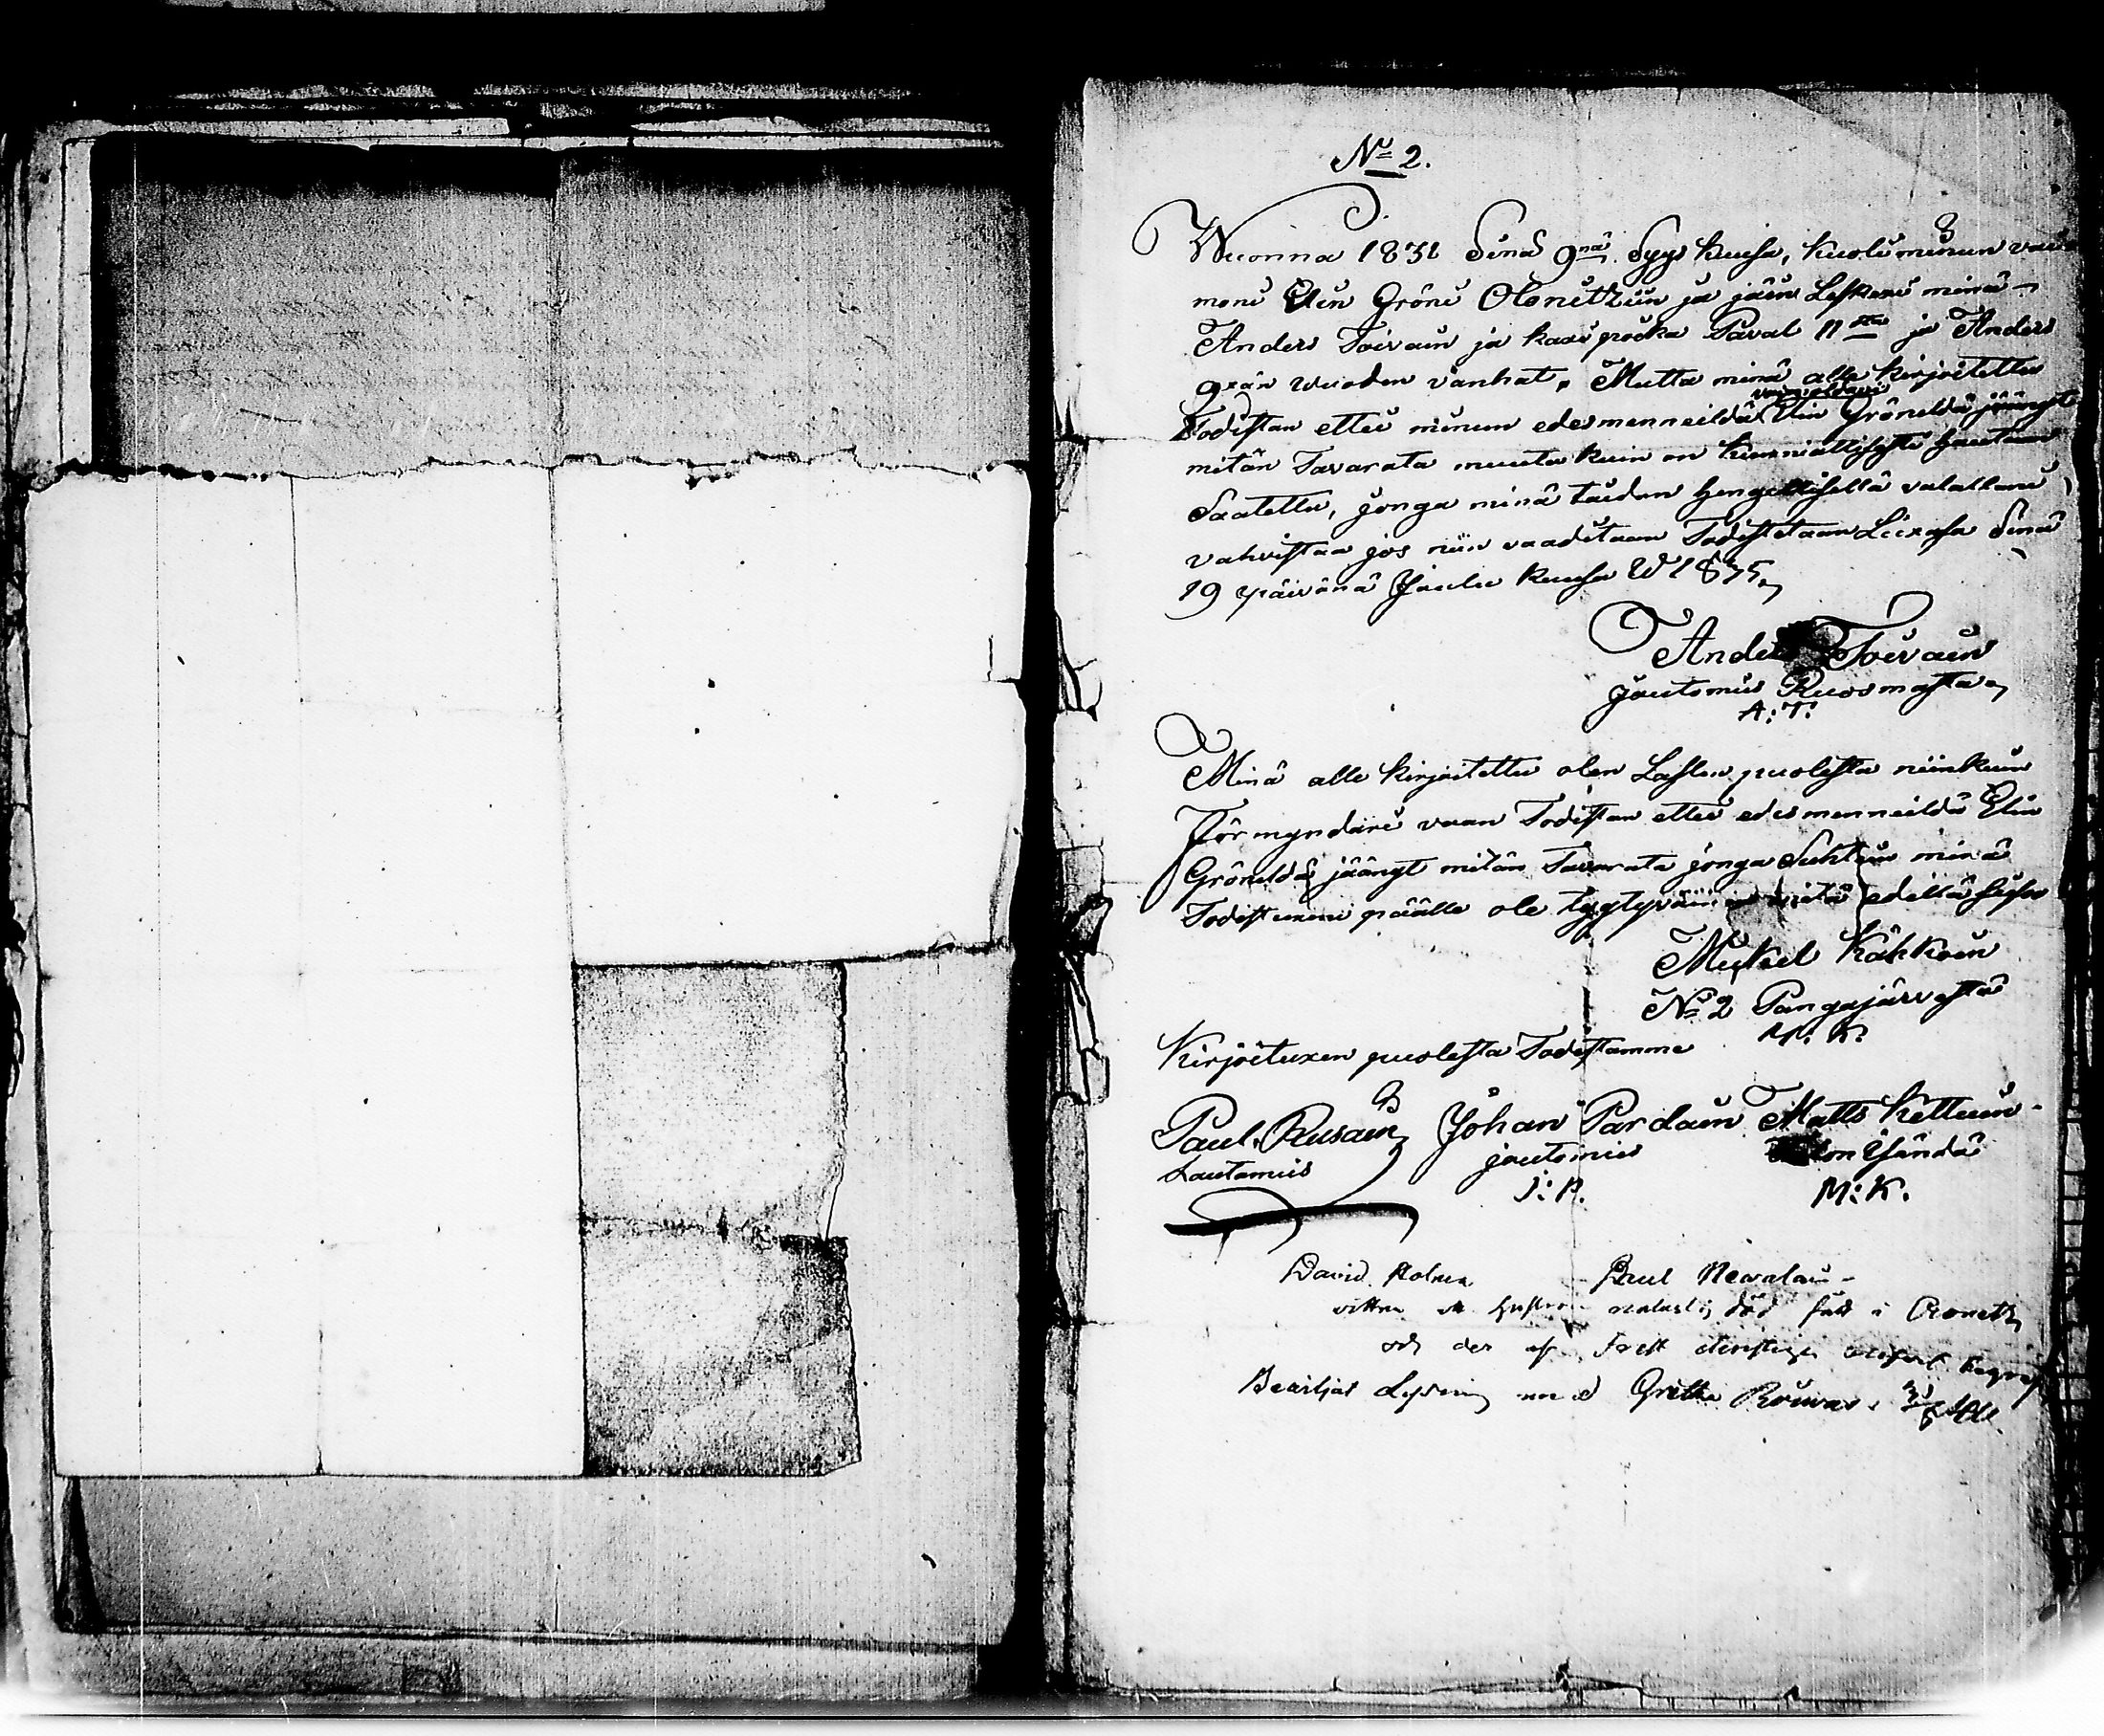 No 2.
Wuonna 1831 Sinä 9nä Syys kuusa, kuoli minun vai
moni Elin Gröni Olonitziin ja jäin Leskexi minä
Anders Toivain ja kaxi poika Påval 11sta ja Anders
9xän wuoden vanhat, Mutta minä alle kirjoitettu
vaimoldani
Todistan ettei minun edesmenneildä Elin Gröneldä jäängt
mitän Tavarata muuta kuin on kunniallisesti hautaan
Saatettu, jonga minä taidan hengellisellä valallani
vahvistaa jos niin vaaditaan Todistetaan Lixasa Sinä
19 päivänä Joulu kuusa W 1835,
Anders Toivain
jnutomus Ruosmasta
A: T:
Minä alle kirjoitettu olen Lasten puolesta niinkuin
Förmyndäri vaan Todistan ettei edesmenneildä Elin
Gröneldä jäängt mitän Tavarata jonga Suhten minä
Todistuxen päälle ole tygtyväinen mitä edellä seiso
Mickel Kähköin
No 2 Pangajärvestä
M: K:
Kirjoituxen puolesta Todistamme
Paul. Rusain Johan Pardain Matts Kettuin
Lautamies jnutomus Talon Isändä
J: P. M: K.
David Holmen Paul Nevalain
vittna at hustrun naturlig död fått i Olonetz
och der
Beviljas Lysning med Gretha